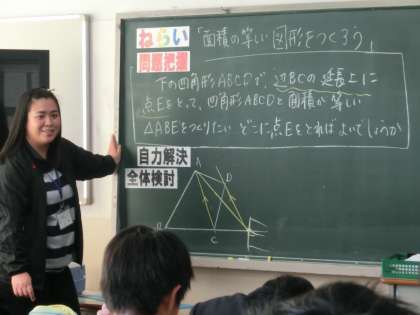 ねらい 「面積の等しい図形をつくろう」
問題把握
下の四角形ABCDで、辺BCの延長上に
点Eをとって、四角形ABCDと面積が等しい
△ABEをつくりたい どこに点Eをとればよいでしょうか
自力解決
全体検討
A
D
B
C
E